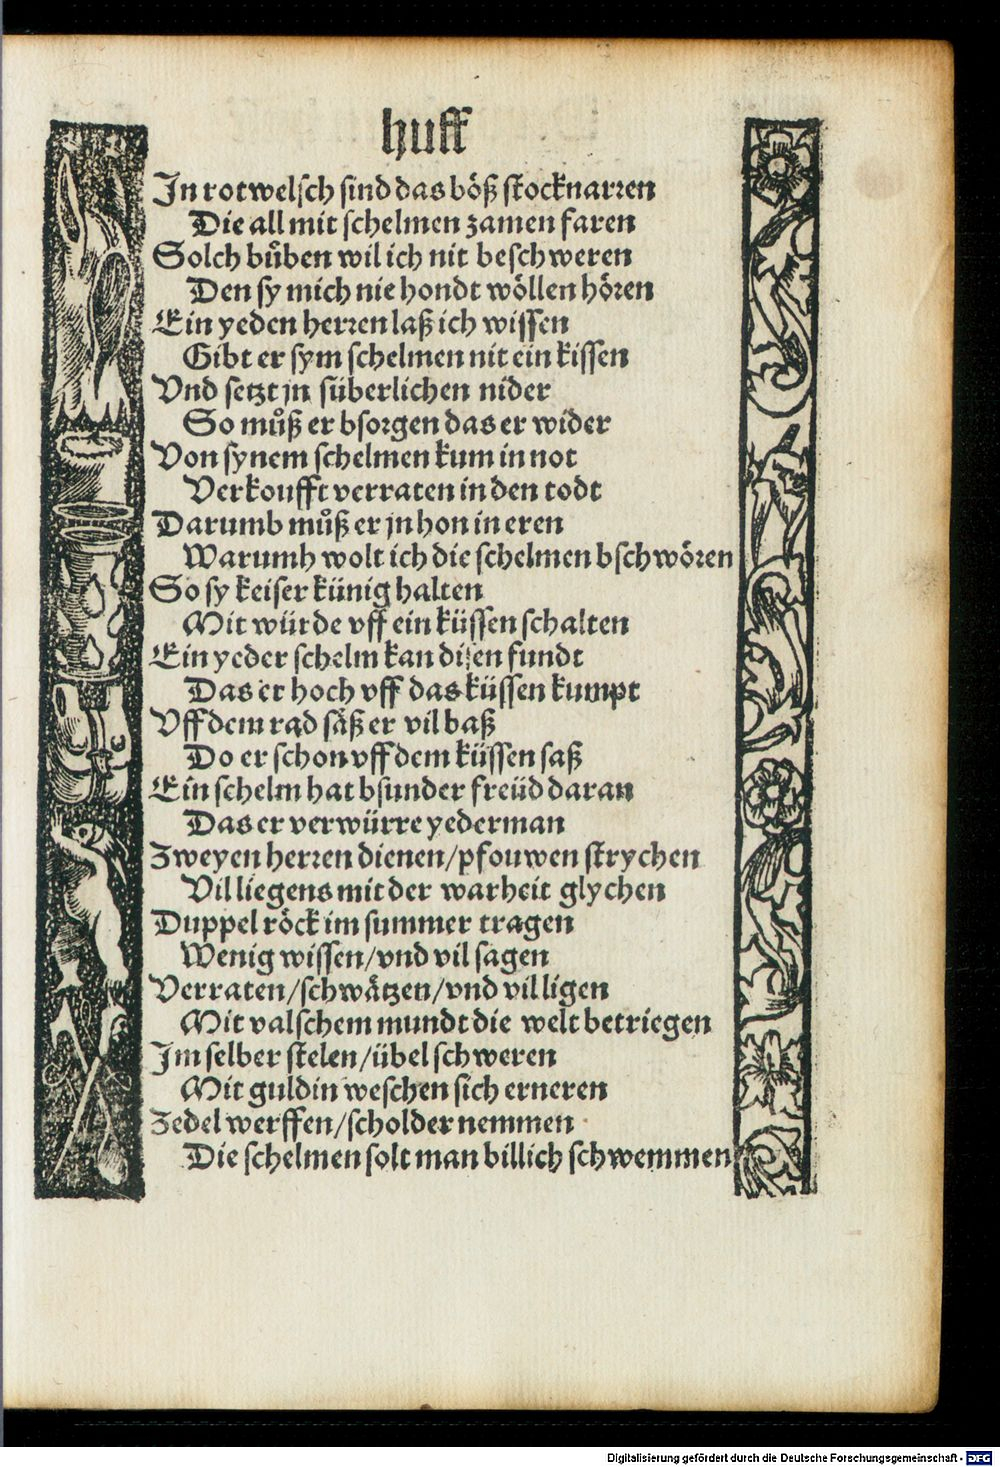 huff
In rotwelsch sind das böß stocknarren
Die all mit schelmen zamen faren
Solch bůben wil ich nit beschweren
Den sy mich nie hondt wöllen hören
Ein yeden herren laß ich wissen
Gibt er sym schelmen nit ein kissen
Vnd setzt jn süberlichen nider
So můß er bsorgen das er wider
Von synem schelmen kum in not
Verkoufft verraten in den todt
Darumb můß er jn hon in eren
Warumh wolt ich die schelmen bschwören
So sy keiser künig halten
Mit würde vff ein küssen schalten
Ein yeder schelm kan disen fundt
Das er hoch vff das küssen kumpt
Vff dem rad säß er vil baß
Do er schon vff dem küssen saß
Ein schelm hat bsunder freüd daran
Das er verwürre yederman
Zweyen herren dienen/pfouwen strychen
Vil liegens mit der warheit glychen
Duppel röck im summer tragen
Wenig wissen/vnd vil sagen
Verraten/schwätzen/vnd vil ligen
Mit valschem mundt die welt betriegen
Im selber stelen/übel schweren
Mit guldin weschen sich erneren
Zedel werffen/scholder nemmen
Die schelmen solt man billich schwemmen
Digitalisierung gefördert durch die Deutsche Forschungsgemeinschaft - DFG